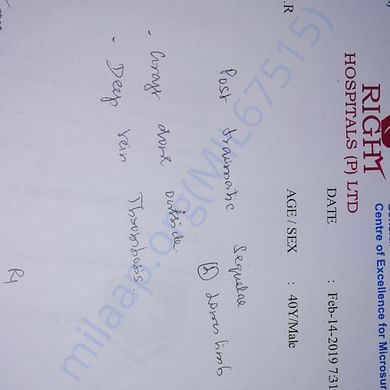 Centre of Excellence for Microsur
RIGH
HOSPITALS (P) LTD
DATE : Feb-14-2019 731
.R AGE / SEX : 40Y/Male
Post traumatic Sequelae
lower limb
- Graft done outside
- Deep vein Thrombosis.
milaap.org(MIL67515)